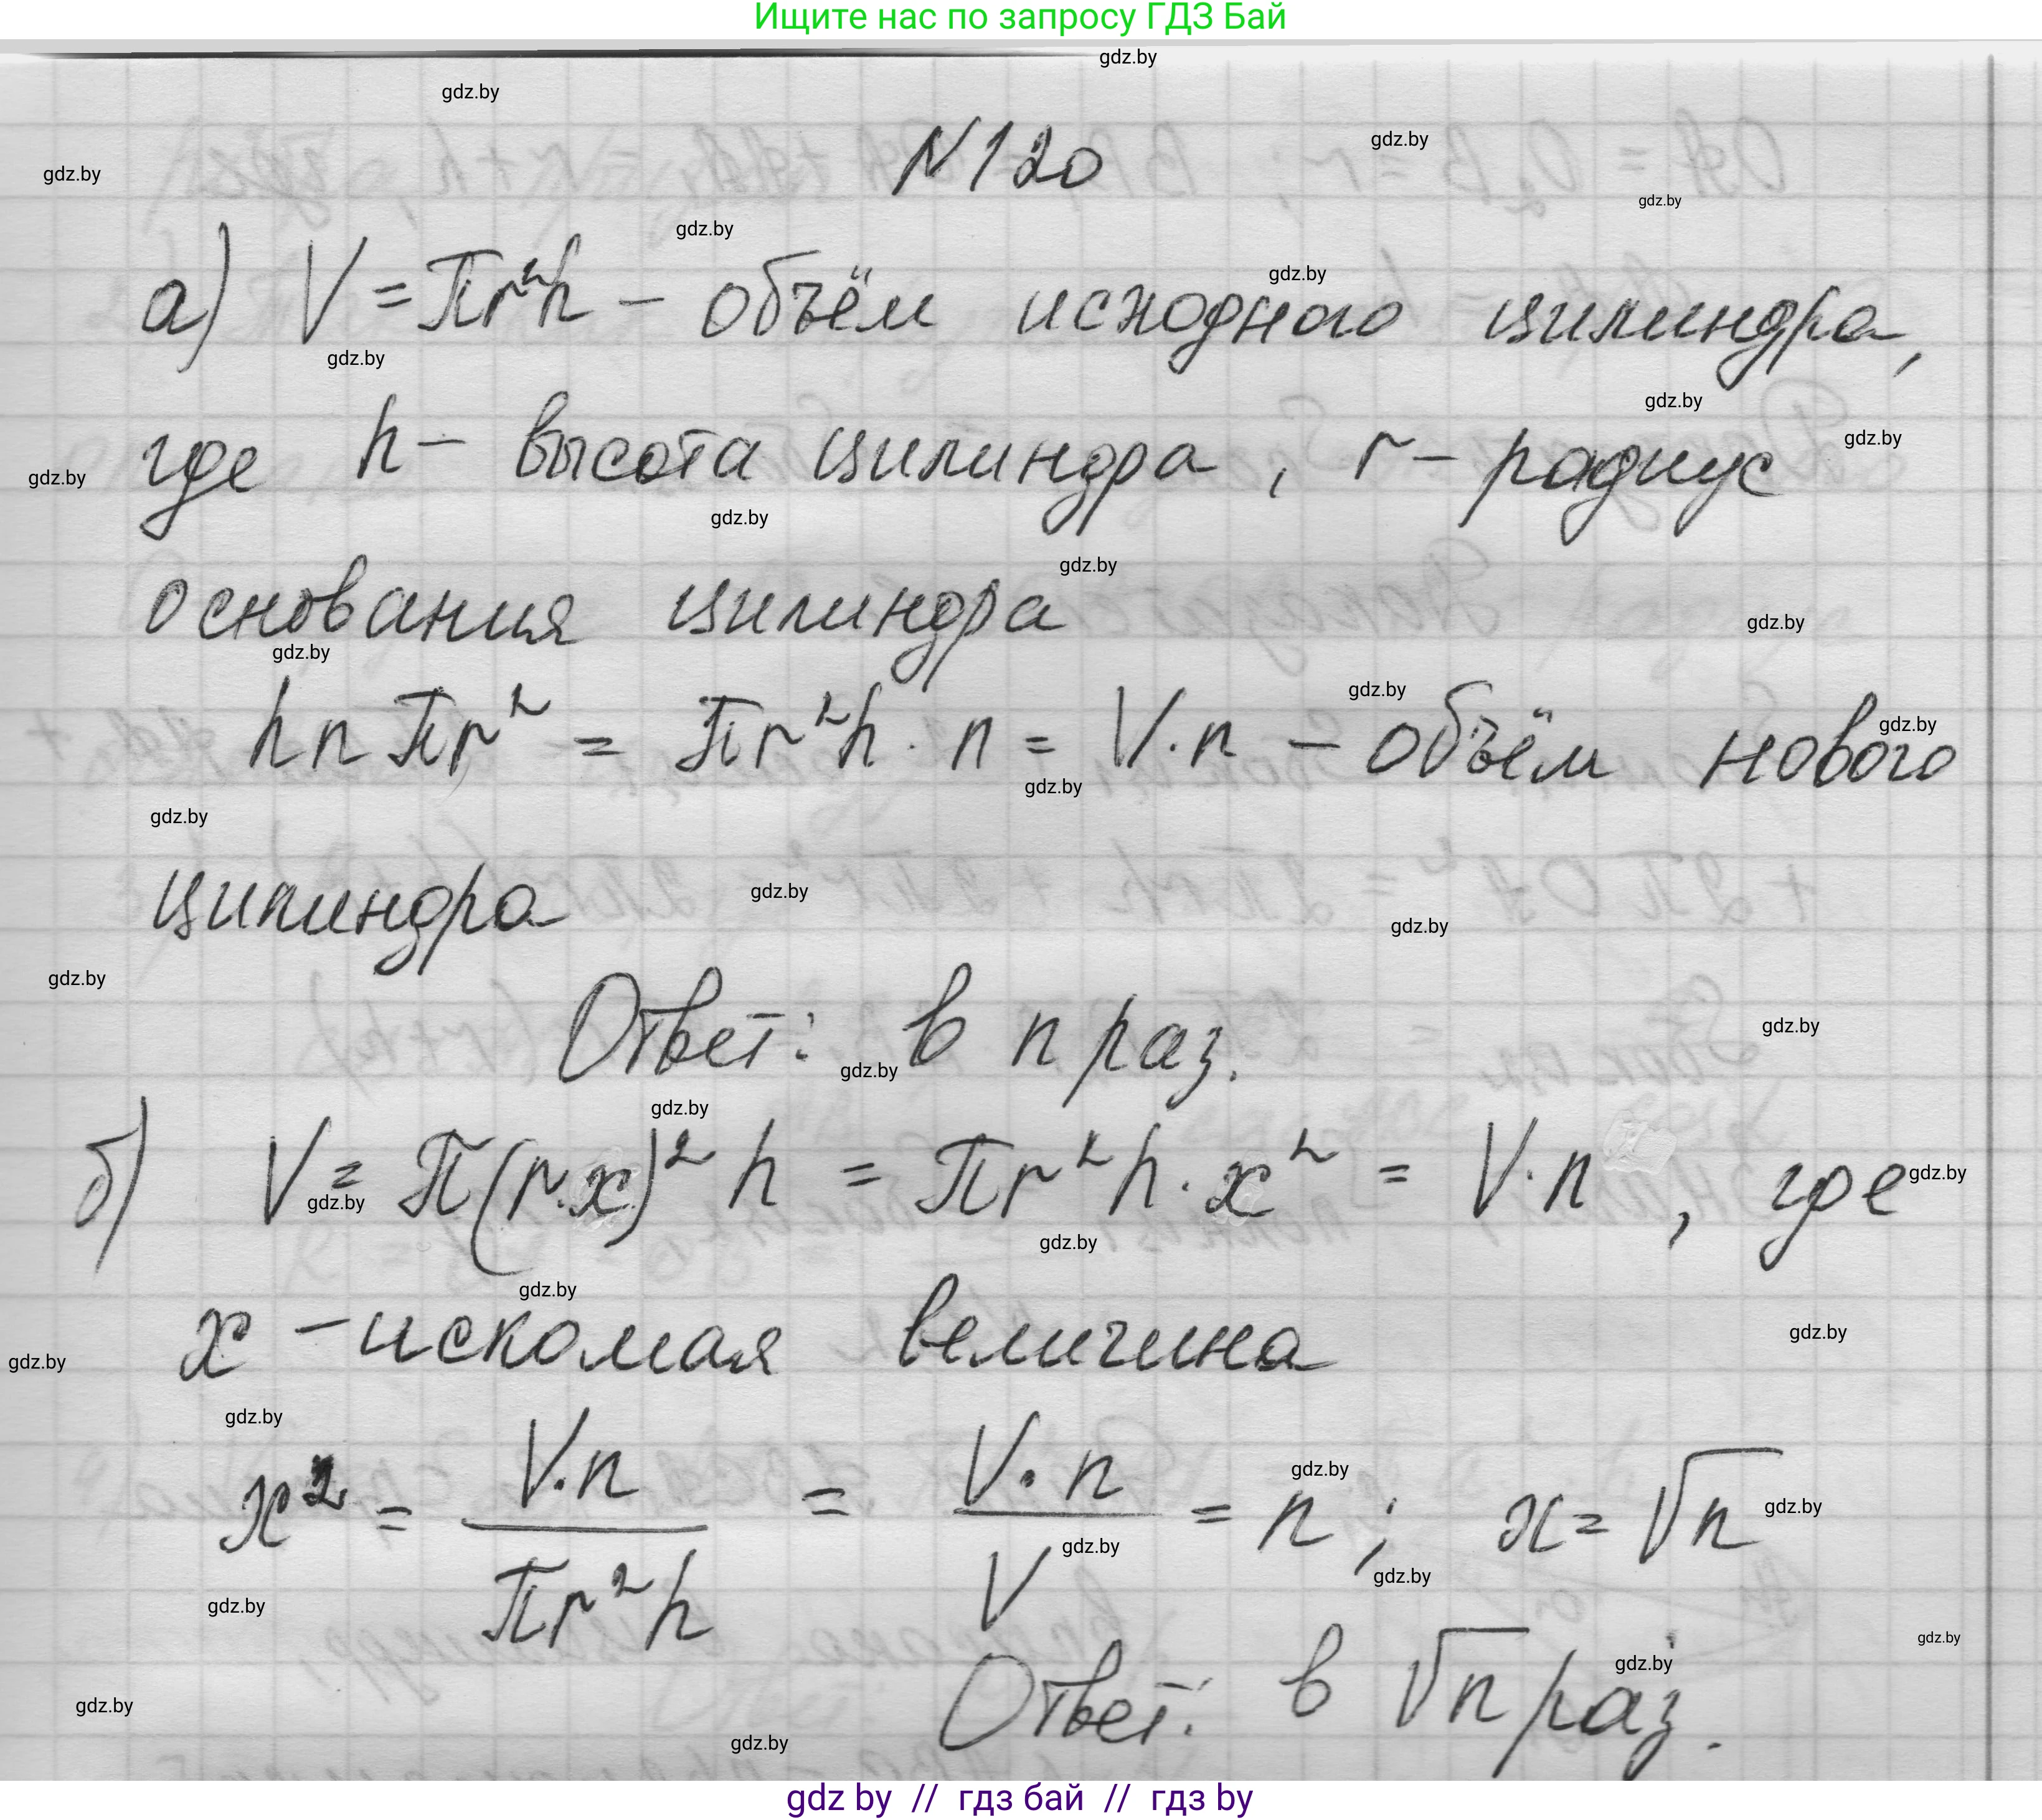 Ищите нас по запросу ГДЗ Бай
N120
а) V = πr²h – объём исходного цилиндра,
где h – высота цилиндра, r – радиус
основания цилиндра
hnπr² = πr²h · n = V · n – объём нового
цилиндра
Ответ: в n раз.
б) V = π(r·x)² h = πr²h · x² = V · n, где
x – искомая величина
x² = V·n / πr²h = V·n / V = n; x = √n
Ответ: в √n раз.
gdz by // гдз бай // гдз by